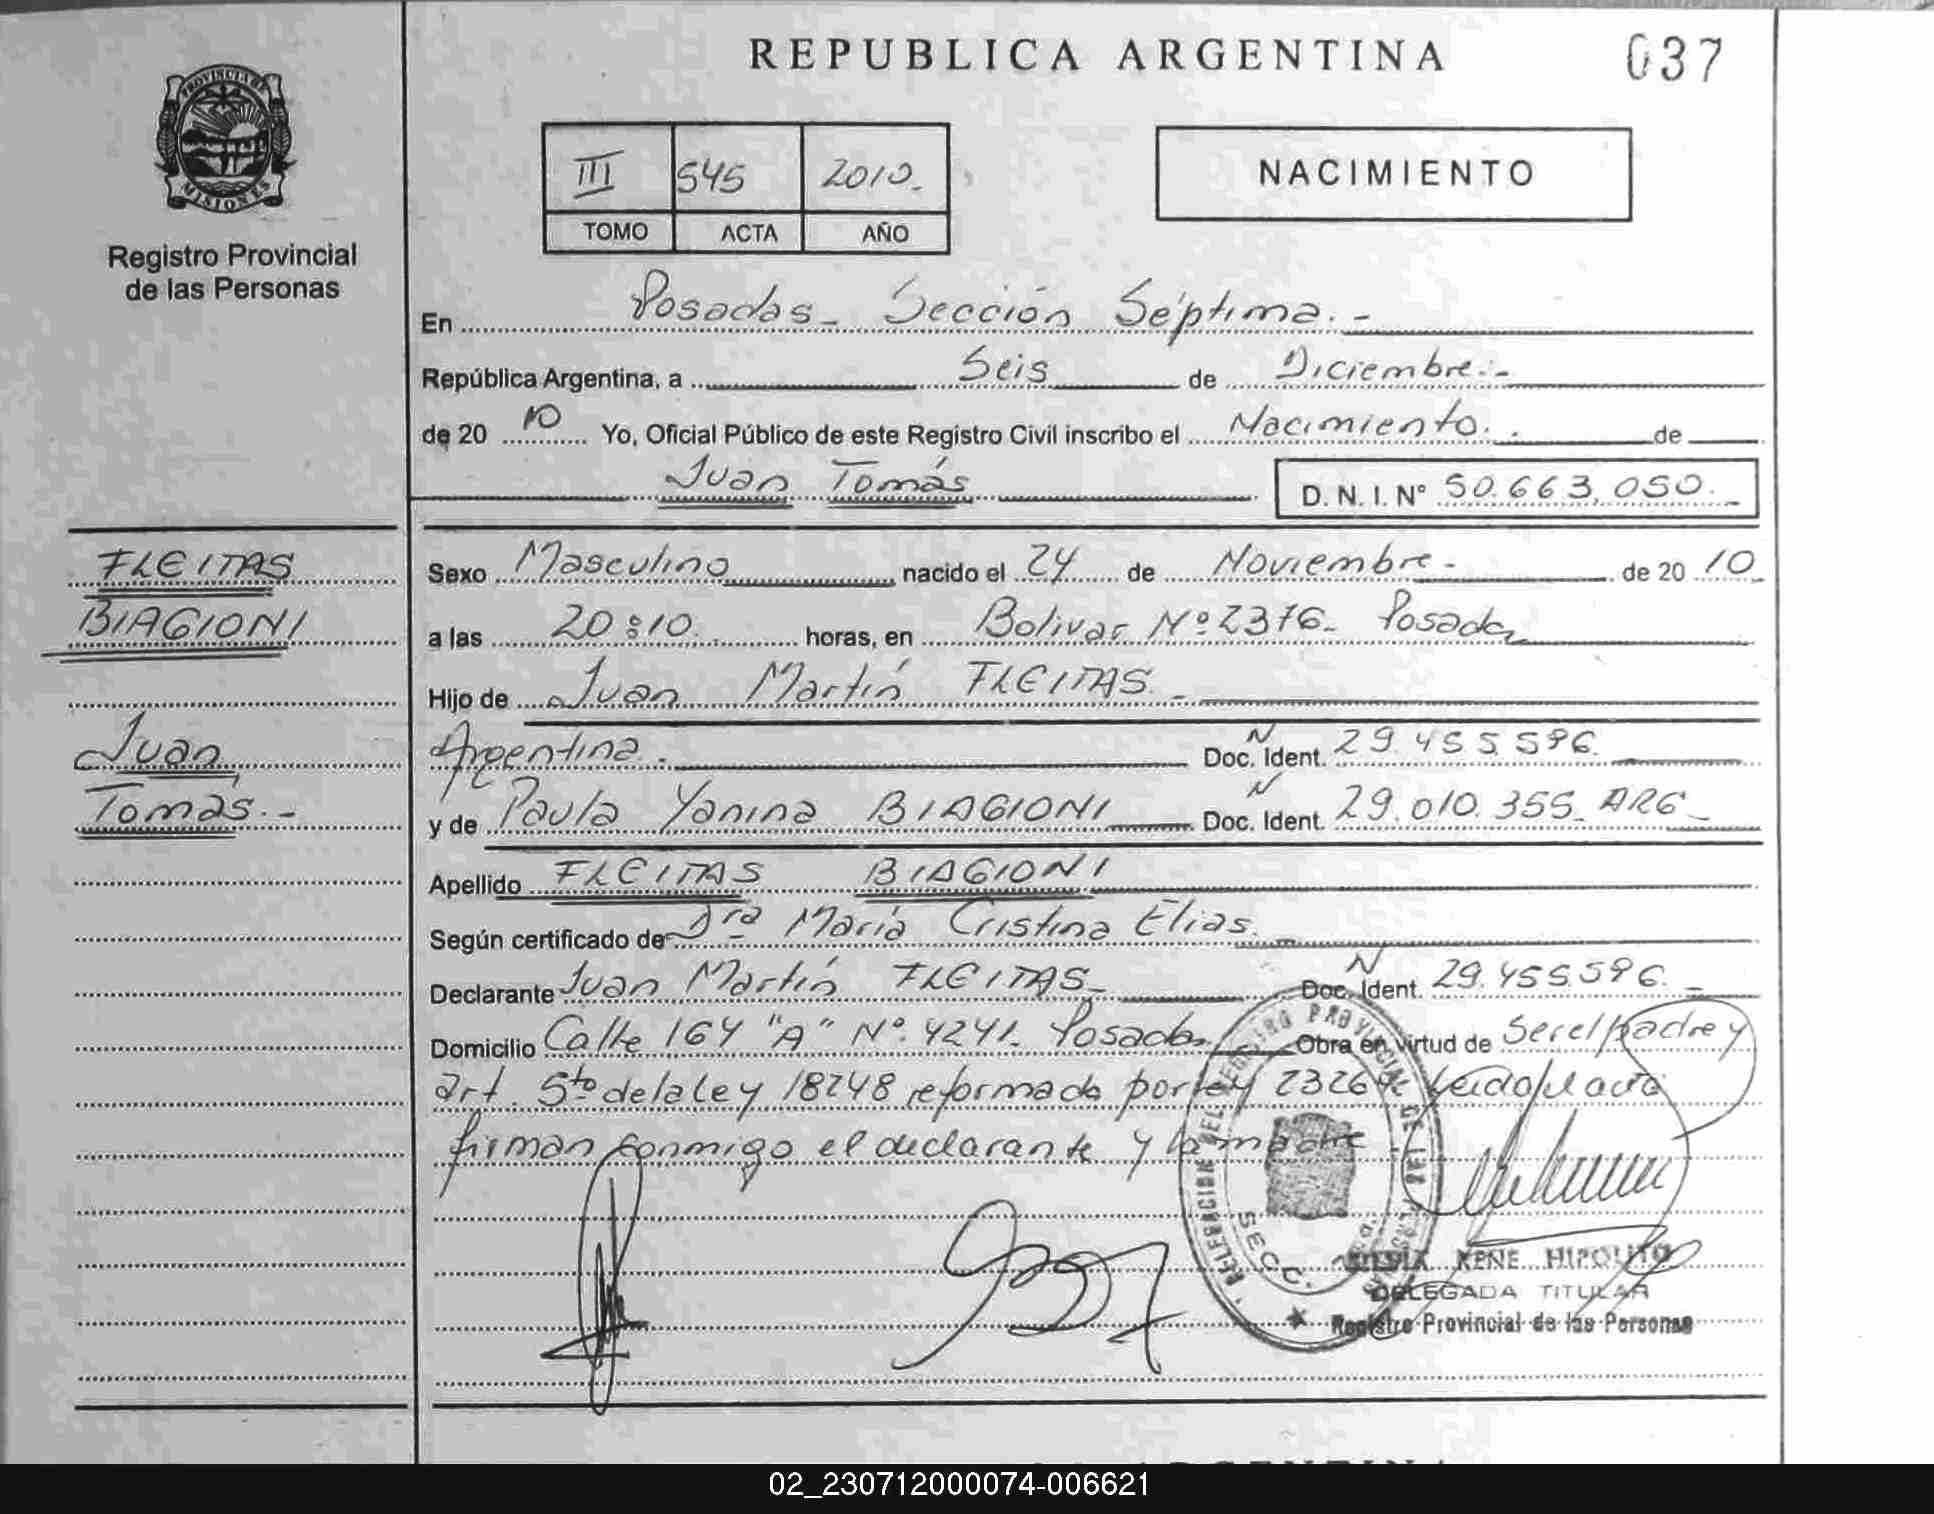 REPUBLICA ARGENTINA
037
PROVINCIA DE
MISIONES
Registro Provincial
de las Personas
III 545 2010.
TOMO ACTA AÑO
NACIMIENTO
En Posadas - Sección Séptima. -
República Argentina, a Seis de Diciembre. -
de 20 10 Yo, Oficial Público de este Registro Civil inscribo el Nacimiento. de
Juan Tomás
D. N. I. Nº 50.663.050. -
FLEITAS
BIAGIONI
Juan
Tomás. -
Sexo Masculino nacido el 24 de Noviembre - de 20 10
a las 20:10. horas, en Bolivar Nº 2376 - Posadas
Hijo de Juan Martín FLEITAS. -
Argentina. Doc. N Ident. 29.455.596.
y de Paula Yanina BIAGIONI Doc. N Ident. 29.010.355 - ARG -
Apellido FLEITAS BIAGIONI
Según certificado de Dra María Cristina Elias. -
Declarante Juan Martín FLEITAS - Doc. N Ident. 29.455.596. -
Domicilio Calle 164 "A" Nº 4241. Posadas Obra en virtud de Ser el padre y
art. 5to de la Ley 18248 reformada por ley 23264. Leido el acta
firman conmigo el declarante y la madre
DELEGACION DEL REGISTRO PROVINCIAL DE LAS PERSONAS
SECC.
RENE HIPOLITO
DELEGADA TITULAR
Registro Provincial de las Personas
02_230712000074-006621